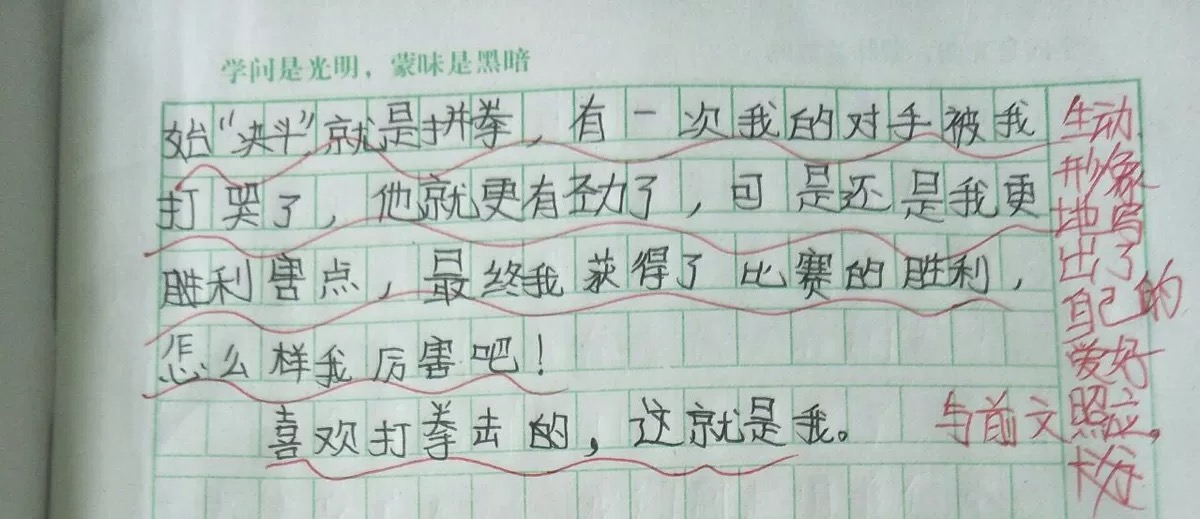 学问是光明，蒙味是黑暗
始“决斗”就是拼拳，有一次我的对手被我
打哭了，他就更有劲了，可是还是我更
胜利害点，最终我获得了比赛的胜利，
怎么样我厉害吧！
喜欢打拳击的，这就是我。
生动
形象
地写
出了
自己的
爱好
与前文照应。